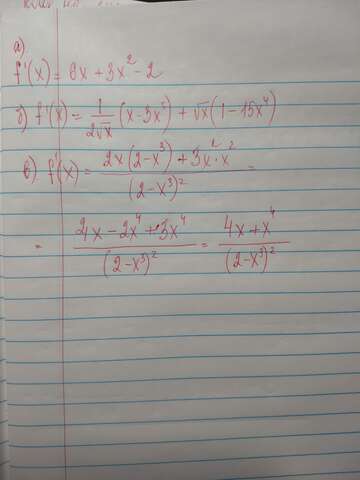 а)
f'(x) = 6x + 3x² - 2
б) f'(x) = 1/(2√x) (x - 3x⁵) + √x (1 - 15x⁴)
в) f'(x) = (2x(2-x³) + 3x²·x²)/(2-x³)² =
= (4x - 2x⁴ + 3x⁴)/(2-x³)² = (4x + x⁴)/(2-x³)²